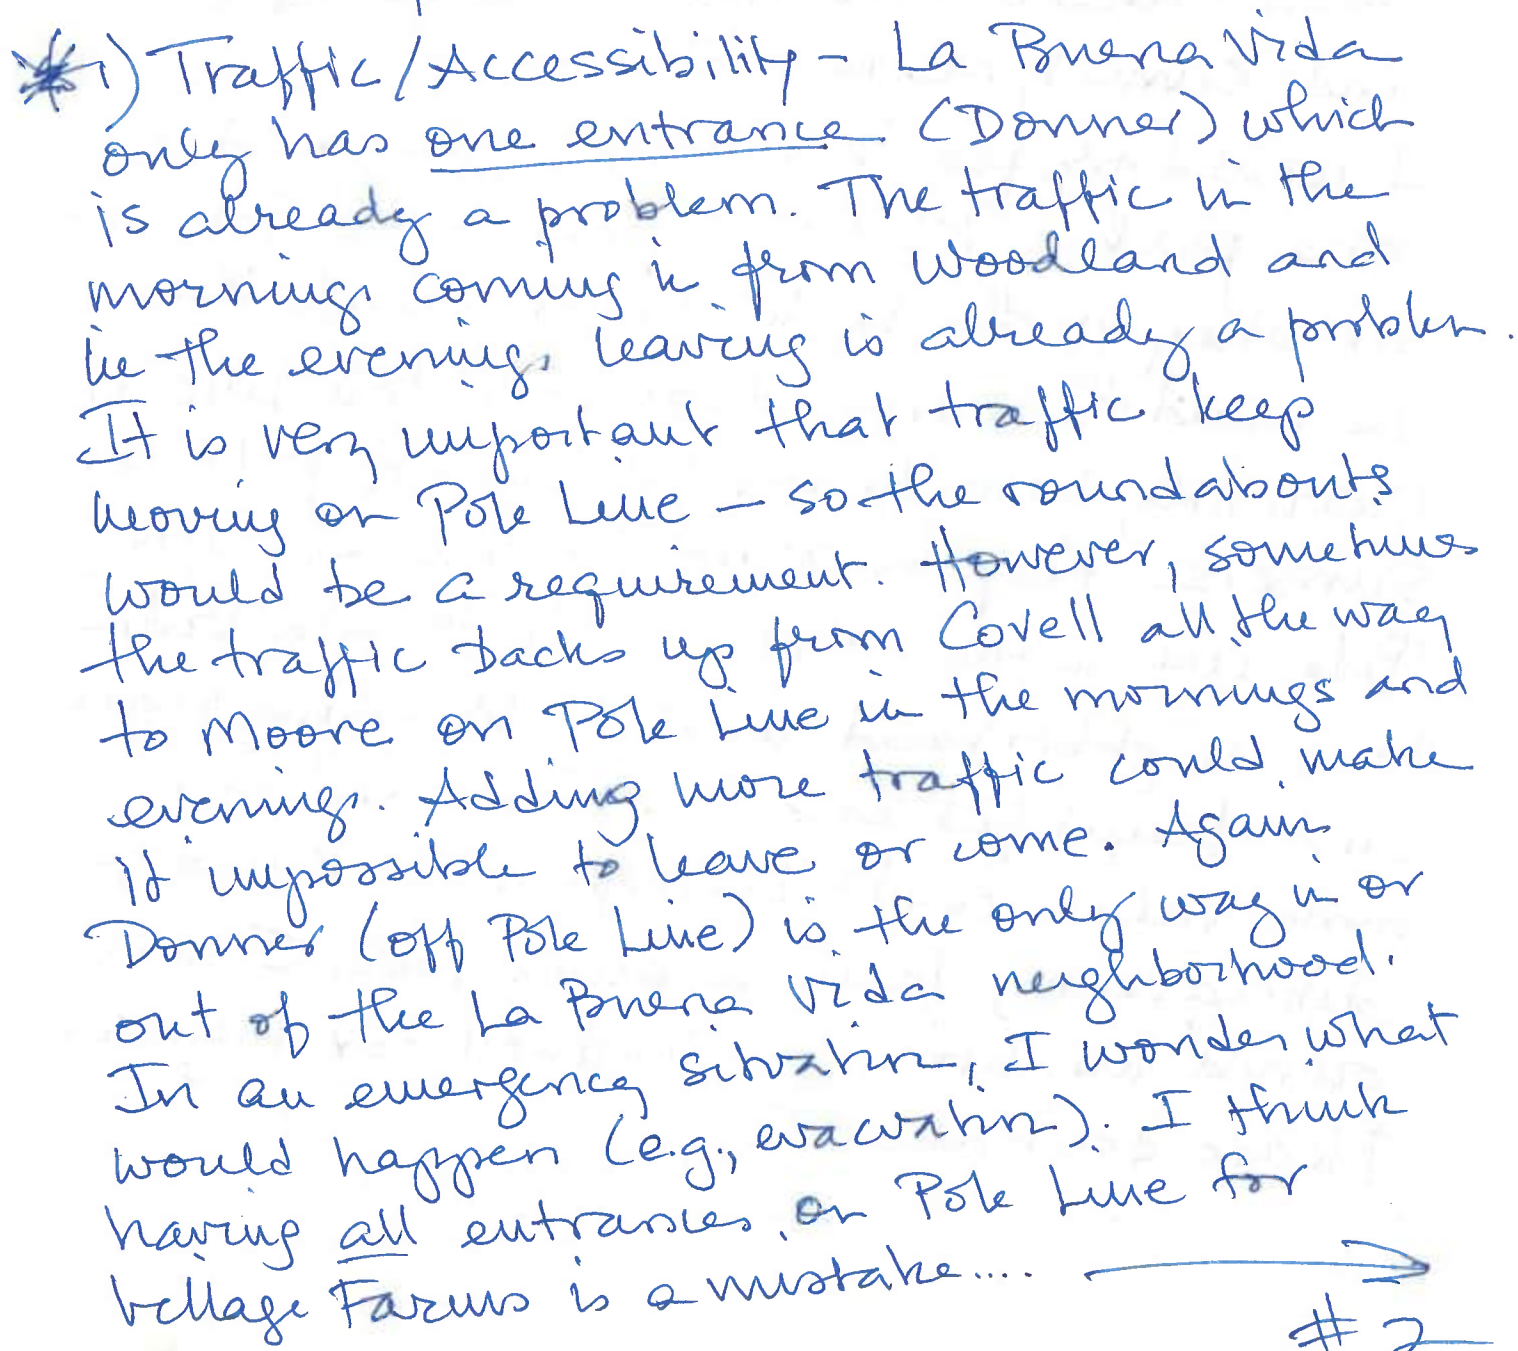 * 1) Traffic/Accessibility - La Buena Vida
only has one entrance (Donner) which
is already a problem. The traffic in the
morning coming in from Woodland and
in the evening leaving is already a problem.
It is very important that traffic keep
moving on Pole Line - so the roundabouts
would be a requirement. However, sometimes
the traffic backs up from Covell all the way
to Moore on Pole Line in the mornings and
evenings. Adding more traffic could make
it impossible to leave or come. Again
Donner (off Pole Line) is the only way in or
out of the La Buena Vida neighborhood.
In an emergency situation, I wonder what
would happen (e.g., evacuation). I think
having all entrances on Pole Line for
Village Farms is a mistake....
#2